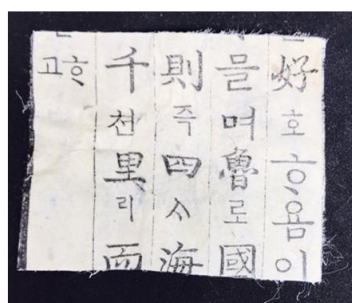 好호ᄒᆞ욤이
믈며魯로國
則즉四ᄉᆞ海
千천里리而
고ᄒᆞ